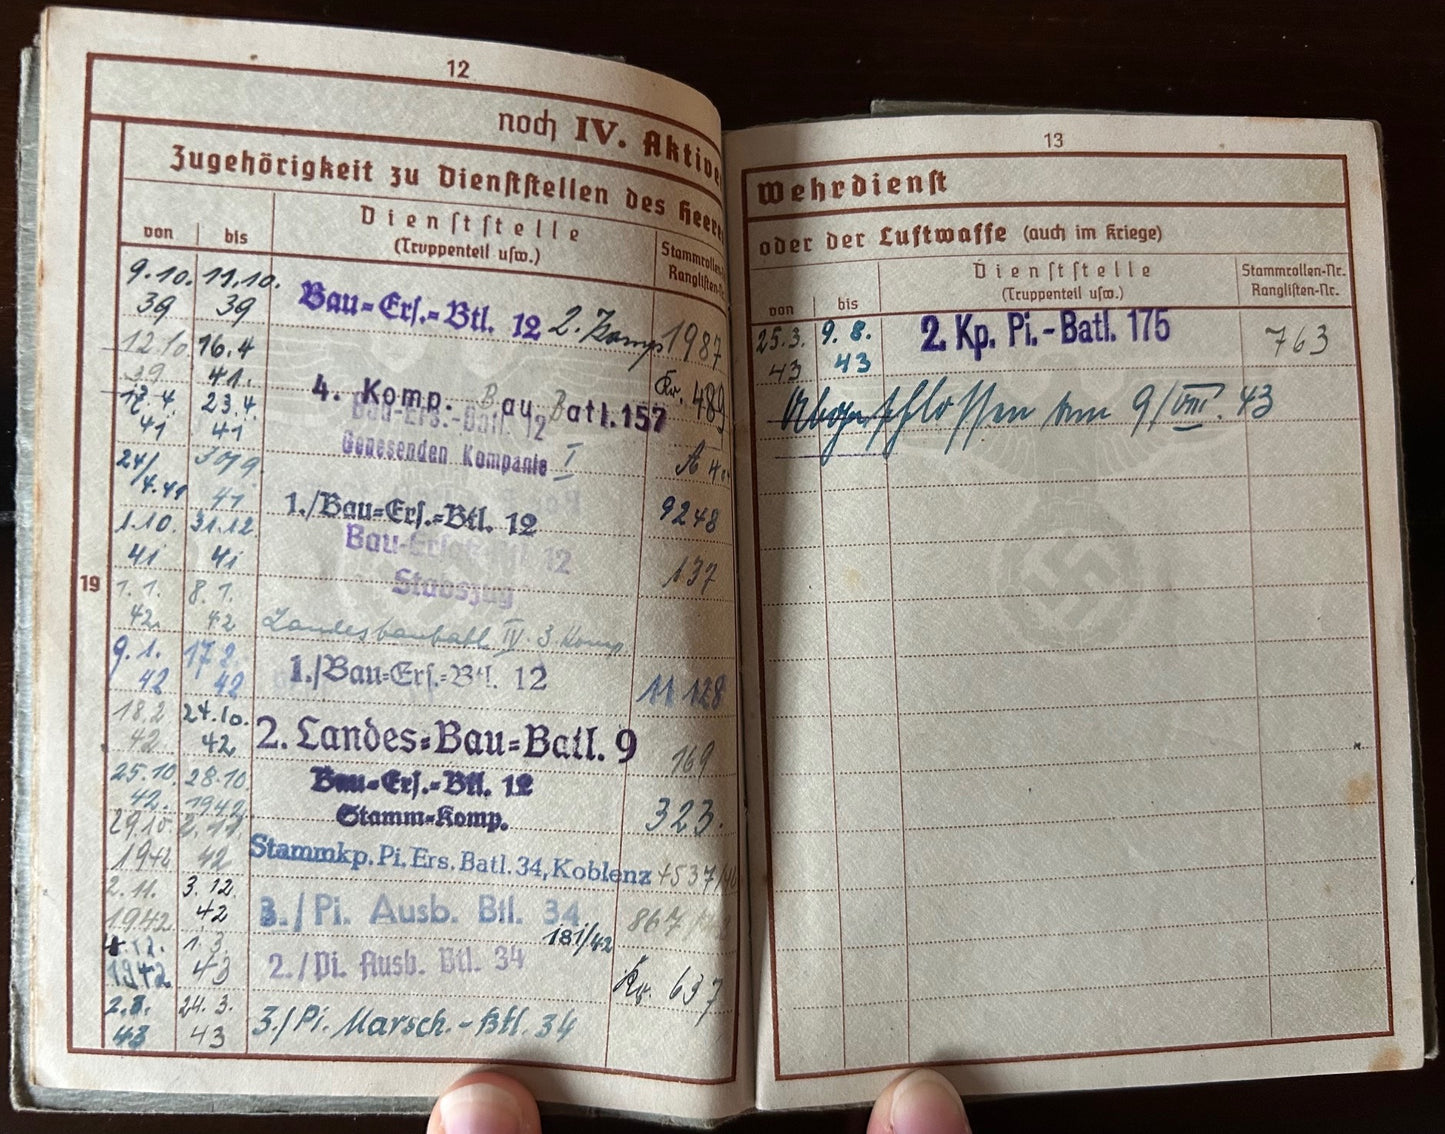 12
noch IV. Aktive
Zugehörigkeit zu Dienststellen des Heeres
von bis Dienststelle
(Truppenteil usw.) Stammrollen-
Ranglisten-Nr.
9.10. 39 11.10. 39 Bau=Ers.=Btl. 12 2. Komp 1987
12.10. 39 16.4 41. 4. Komp. Bau Batl. 157 Kr. 489
17.4. 41 23.4. 41 Bau-Ers.-Batl. 12
Genesenden Kompanie I A
24/4.41 30/9 41 1./Bau=Ers.=Btl. 12 9248
1.10. 41 31.12. 41 Bau-Ersatz-Btl. 12
Stabszug 137
19
1.1. 42 8.1. 42 Landesbaubatl. IV 3. Komp
9.1. 42 17.2. 42 1./Bau=Ers.=Btl. 12 11128
18.2 42 24.10. 42 2. Landes=Bau=Batl. 9 169
25.10 42. 28.10 1942 Bau=Ers.=Btl. 12
Stamm=Komp. 323.
29.10 1942 2.11 42 Stammkp. Pi. Ers. Batl. 34, Koblenz 4537/
2.11. 1942 3.12. 42 3./Pi. Ausb. Btl. 34 867/
181/42
4.12. 1942 1.3. 43 2./Pi. Ausb. Btl. 34 Kr. 637
2.3. 43 24.3. 43 3./Pi. Marsch.-Btl. 34
13
Wehrdienst
oder der Luftwaffe (auch im Kriege)
von bis Dienststelle
(Truppenteil usw.) Stammrollen-Nr.
Ranglisten-Nr.
25.3. 43 9.8. 43 2. Kp. Pi.-Batl. 175 763
Abgeschlossen am 9/VIII. 43